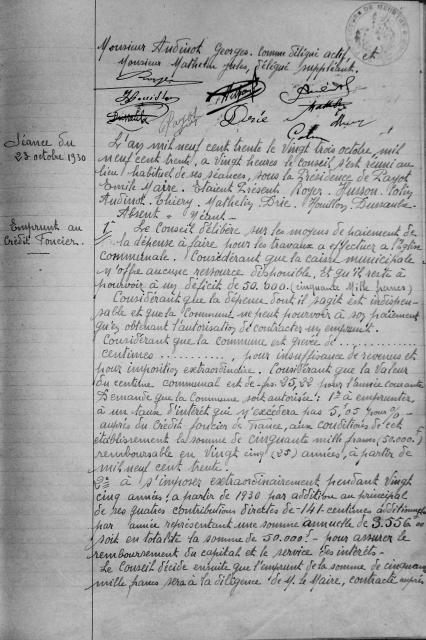 Monsieur Audinot Georges. Comme délégué actif, et
Monsieur Mathelin Jules, délégué suppléant.
Séance du
23 octobre 1930
L'an mil neuf cent trente le Vingt trois octobre, mil
neuf cent trente, a Vingt heures le Conseil, s'est réuni au
lieu habituel de ses séances, sous la Présidence de
Emile Maire. Etaient Présents. Royer. Husson. Colin
Audinot. Thiery. Mathelin Drié. Houillon
Absent
Emprunt au
Crédit Foncier.
1° Le Conseil délibère, sur les moyens de paiement de
la dépense à faire pour les travaux a effectuer a l'Eglise
communale. Considérant que la caisse municipale
n'offre aucune ressource disponible, et qu'il reste à
pourvoir à un déficit de 50.000. (cinquante Mille francs)
Considérant que la dépense dont il s'agit est indispen-
sable et que la Commune ne peut pourvoir à son paiement
qu'en obtenant l'autorisation de contracter un emprunt.
Considérant que la commune est grevée de ..............
centimes ..........., pour insuffisance de revenus et
pour imposition extraordinaire. Considérant que la valeur
du centime communal est de 25,22 pour l'année courante
Demande que la Commune soit autorisée: 1° à emprunter,
à un taux d'intérêt qui n'excédera pas 5,05 pour % -
auprès du Crédit foncier de France, aux conditions de cet
établissement la somme de cinquante mille francs (50.000.f)
remboursable en Vingt cinq (25) années, à partir de
mil neuf cent trente.
2° à s'imposer extraordinairement pendant Vingt
cinq années, a partir de 1930 par addition au principal
de ses quatres contributions directes de 141 centimes additionnels
par année représentant une somme annuelle de 3.556
soit en totalité la somme de 50.000f - pour assurer le
remboursement du capital et le service des intérêts -
Le Conseil décide ensuite que l'emprunt de la somme de cinquante
mille francs sera à la diligence de M. le Maire, contracté auprès